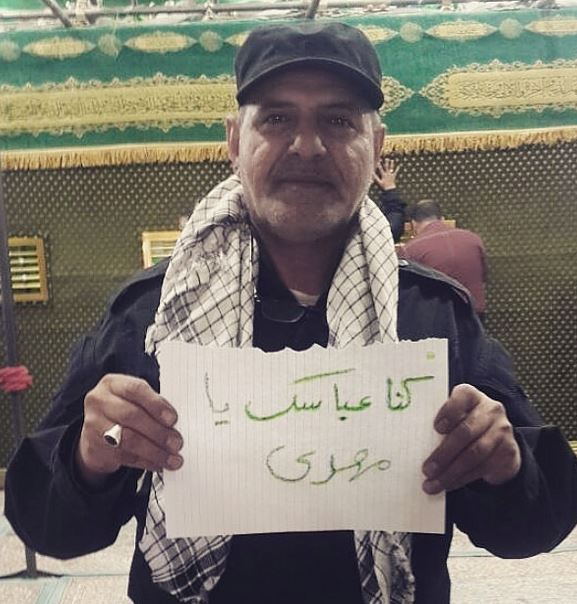 كنا عباسك يا
مهدي